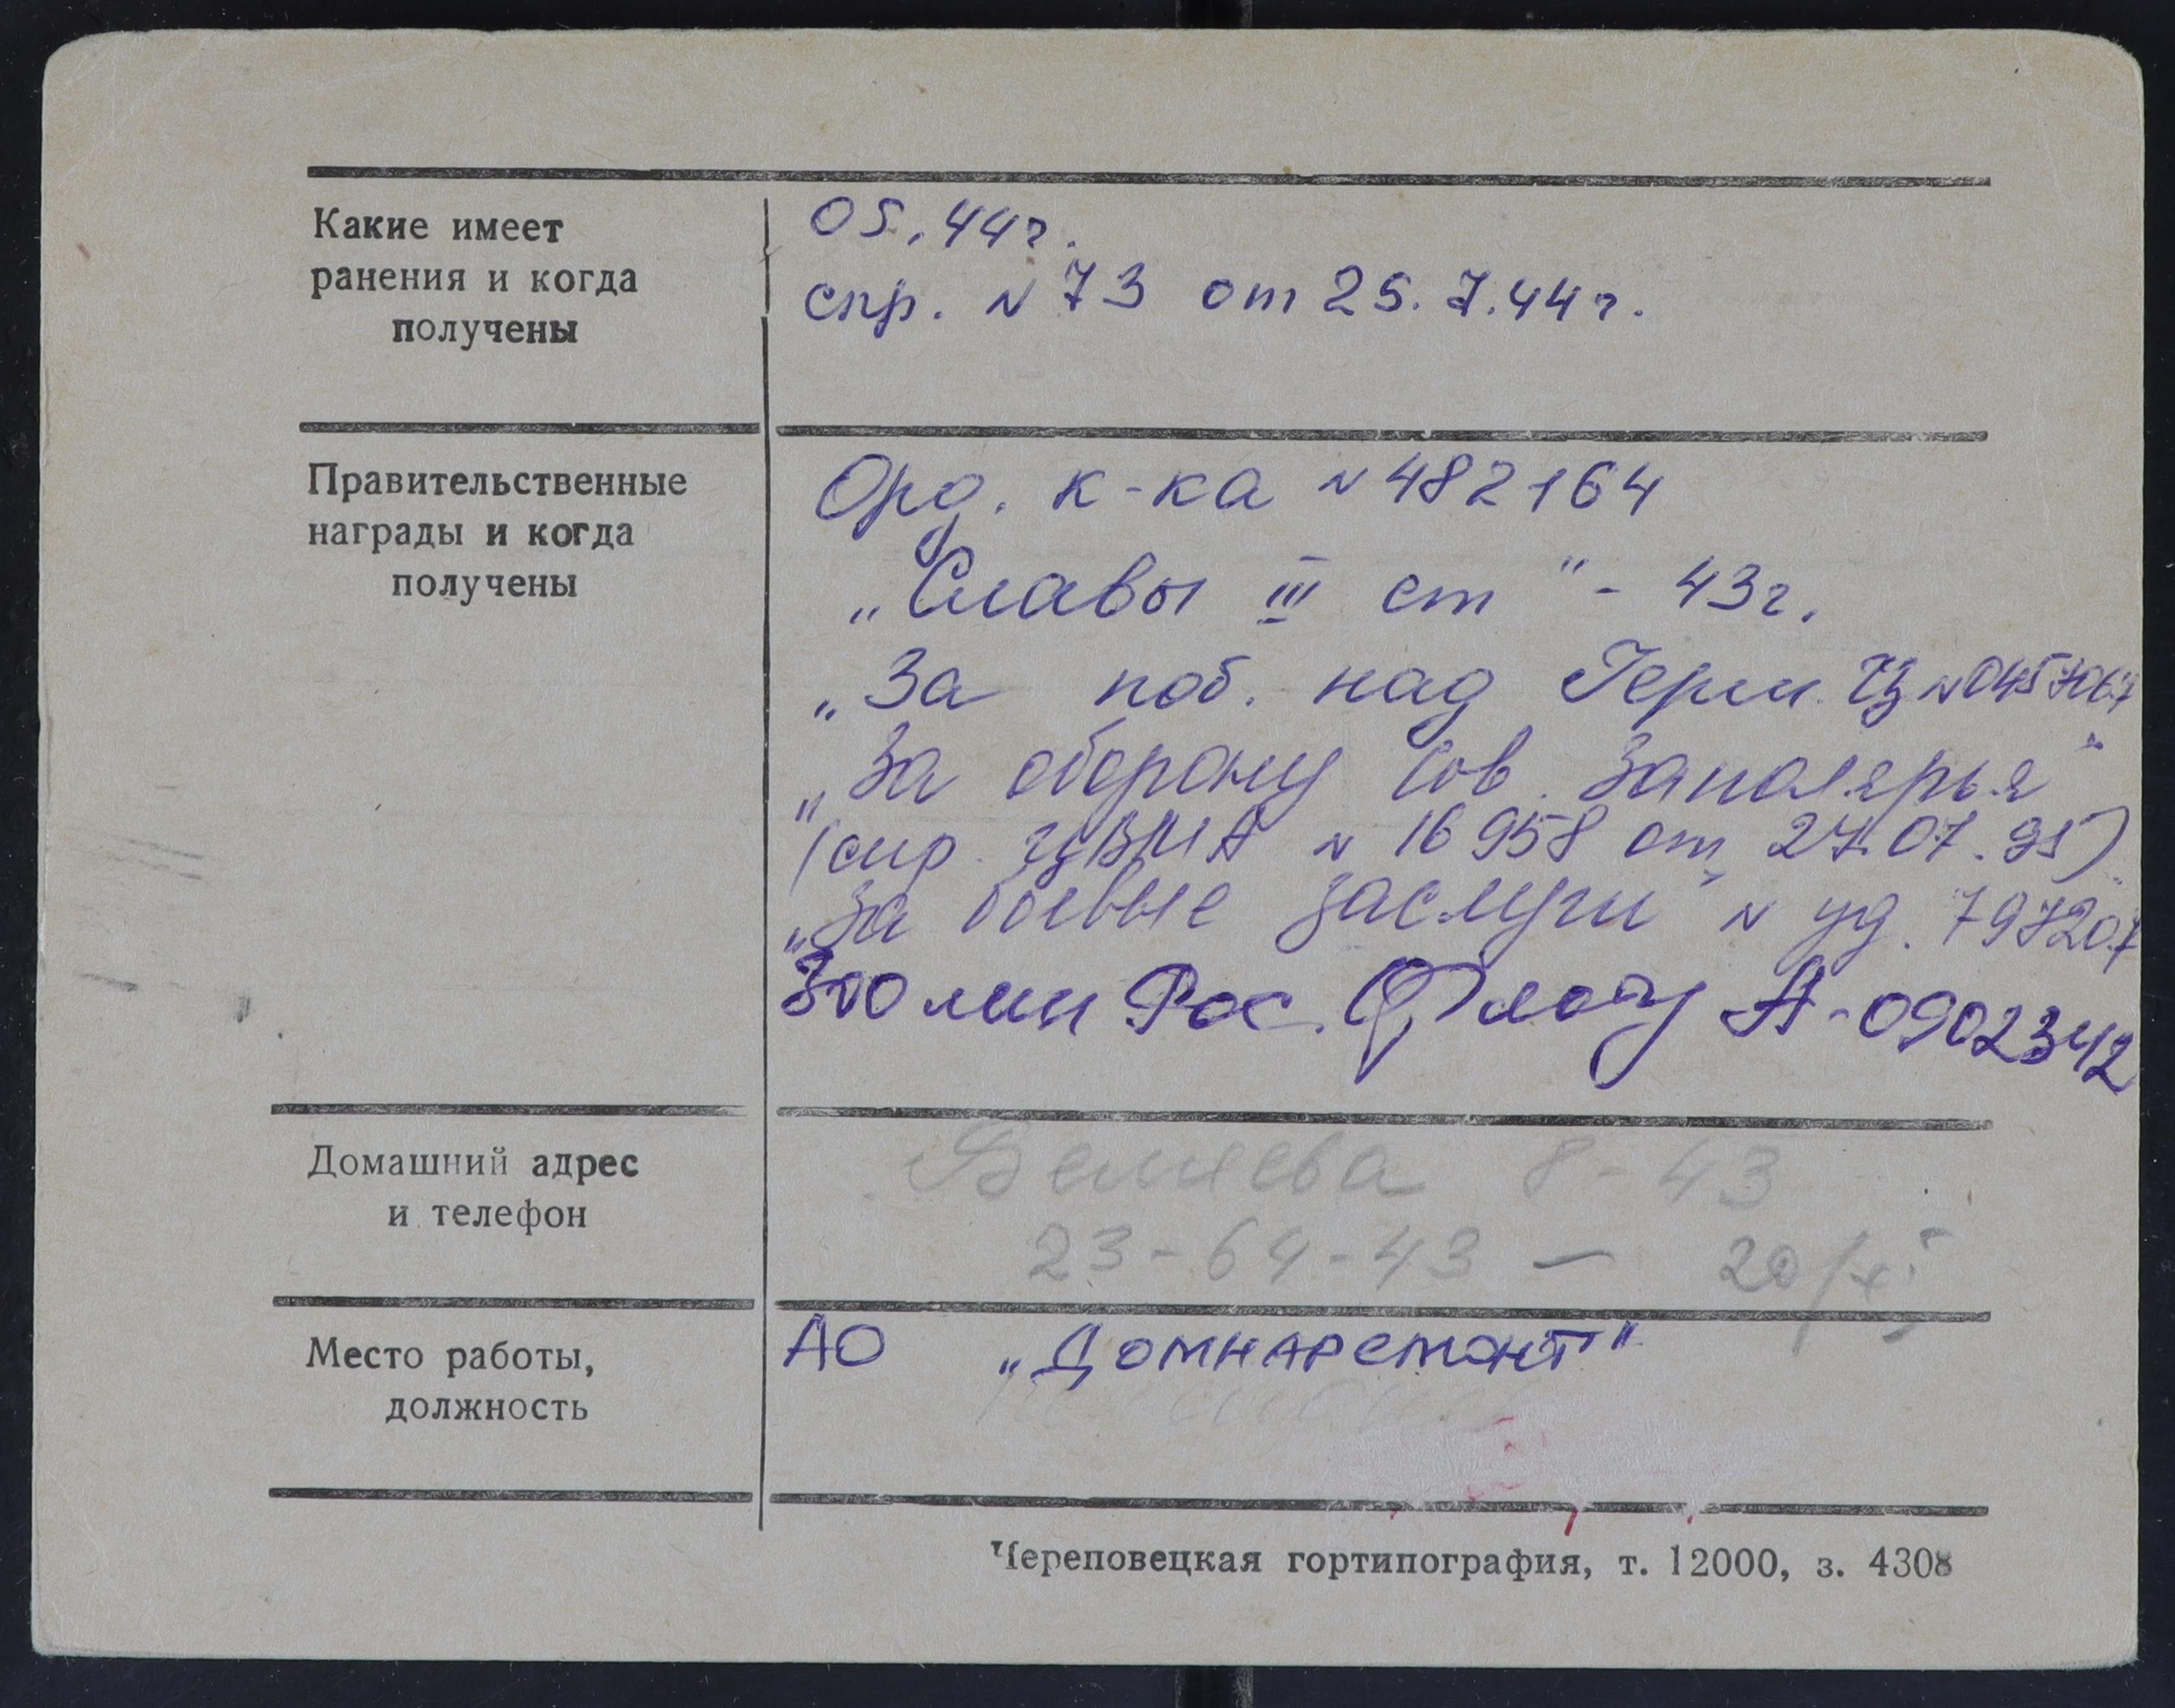 Какие имеет
ранения и когда
получены
05.44г.
спр. N 73 от 25.7.44г.
Правительственные
награды и когда
получены
Орд. к-ка N 482164
„Славы III ст" - 43г.
„За поб. над Герм. N 0457067
„За оборону Сов. Заполярья"
(спр. ЦВМА N 16958 от 27.07.95)
„За боевые заслуги" N уд. 797207
300 лет Рос. Флоту А-0902342
Домашний адрес
и телефон
Беляева 8-43
23-64-43 — 20/
Место работы,
должность
АО „Домнаремонт"
Череповецкая гортипография, т. 12000, з. 4308